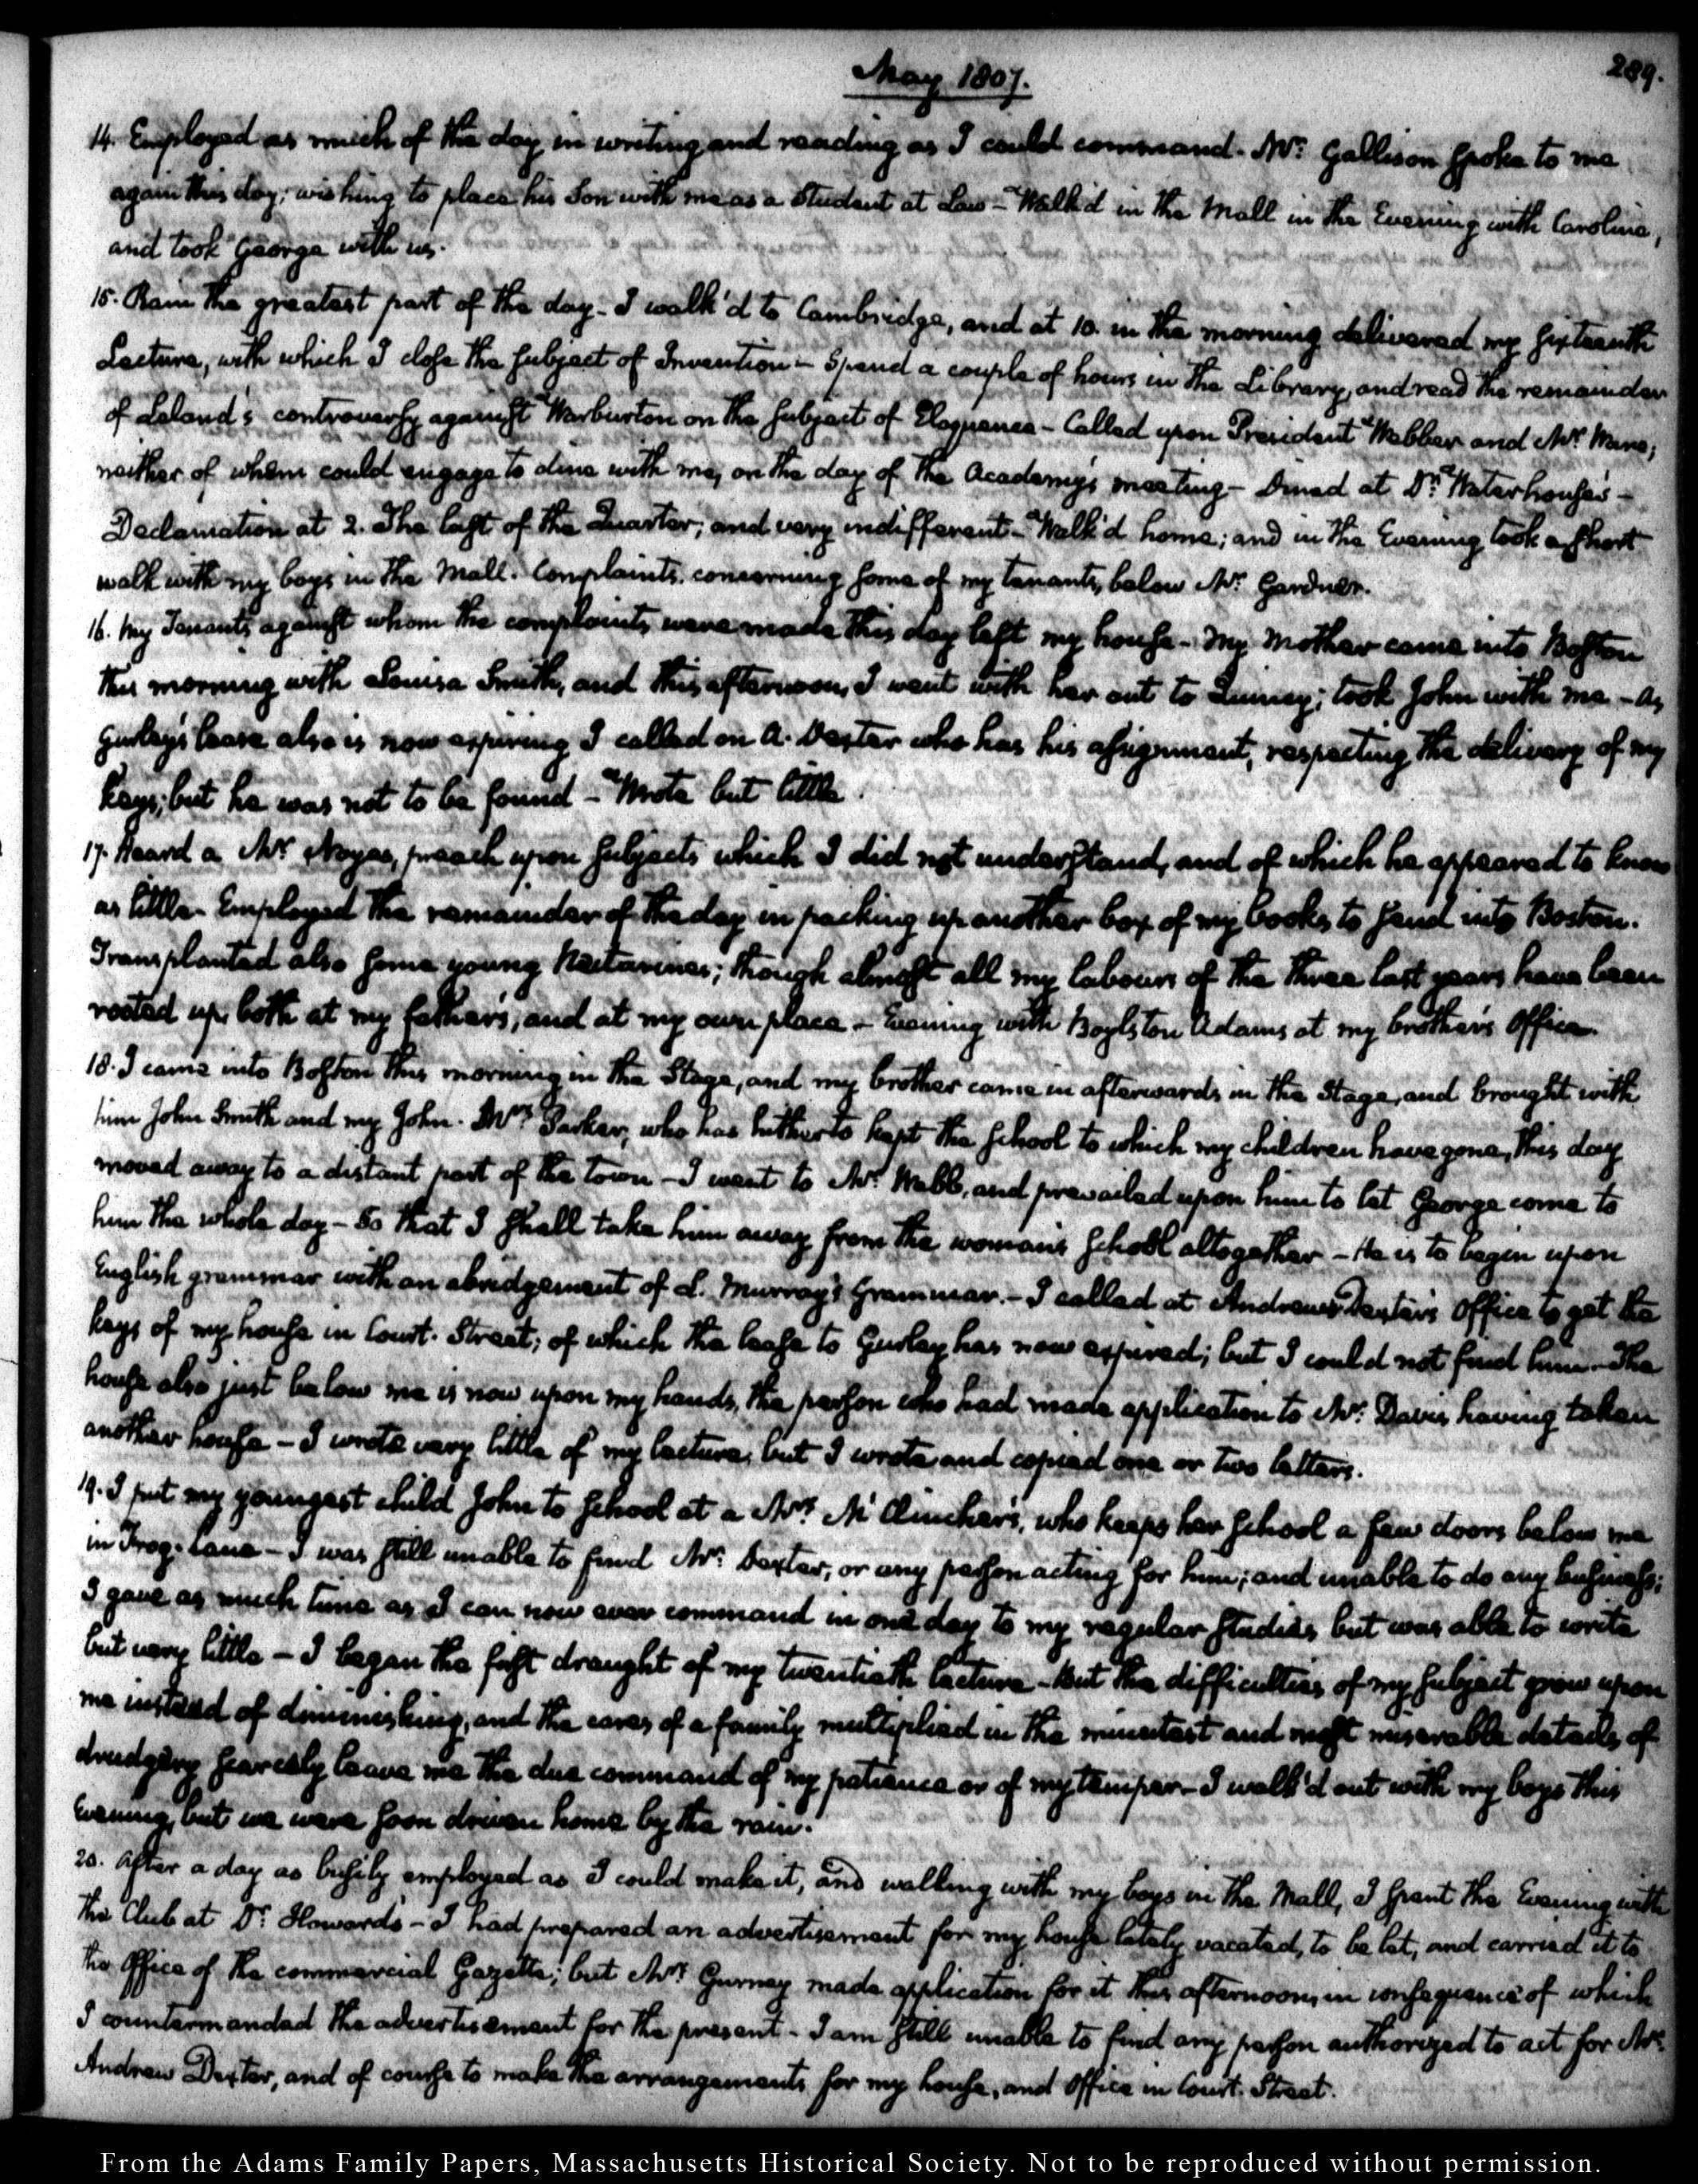 May 1807.
289.
14. Employed as much of the day in writing and reading as I could command. Mr: Gallison spoke to me
again this day; wishing to place his Son with me as a Student at Law – Walk'd in the Mall in the Evening with Caroline,
and took George with us.
15. Rain the greatest part of the day – I walk'd to Cambridge, and at 10. in the morning delivered my sixteenth
Lecture, with which I close the subject of Invention – Spend a couple of hours in the Library, and read the remainder
of Leland's controversy against Warburton on the subject of Eloquence – Called upon President Webber and Mr: Ware;
neither of whom could engage to dine with me, on the day of the Academy's meeting – Dined at Dr: Waterhouse's –
Declamation at 2. The last of the Quarter; and very indifferent – Walk'd home; and in the Evening took a short
walk with my boys in the Mall. Complaints concerning some of my tenants, below Mr: Gardner.
16. My Tenants against whom the complaints were made this day left my house – My Mother came into Boston
this morning with Louisa Smith, and this afternoon, I went with her out to Quincy; took John with me – As
Gurley's lease also is now expiring I called on A. Dexter who has his assignment, respecting the delivery of my
keys; but he was not to be found – Wrote but little.
17. Heard a Mr: Noyes, preach upon subjects which I did not understand, and of which he appeared to know
as little – Employed the remainder of the day in packing up another box of my books to send into Boston.
Transplanted also some young Nectarines; though almost all my labours of the three last years have been
rooted up, both at my father's, and at my own place – Evening with Boylston Adams at my brother's Office.
18. I came into Boston this morning in the Stage, and my brother came in afterwards in the Stage, and brought with
him John Smith and my John. Mrs: Parker, who has hitherto kept the school to which my children have gone, this day
moved away to a distant part of the town – I went to Mr: Webb, and prevailed upon him to let George come to
him the whole day – So that I shall take him away from the woman's school altogether – He is to begin upon
English grammar with an abridgement of L. Murray's Grammar. – I called at Andrew Dexter's Office to get the
keys of my house in Court-Street; of which the lease to Gurley has now expired; but I could not find him – The
house also just below me is now upon my hands, the person who had made application to Mr: Davis having taken
another house – I wrote very little of my lecture; but I wrote and copied one or two letters.
19. I put my youngest child John to school at a Mrs: McClincher's, who keeps her school a few doors below me
in Frog-Lane – I was still unable to find Mr: Dexter, or any person acting for him; and unable to do any business;
I gave as much time as I can now ever command in one day to my regular studies but was able to write
but very little – I began the first draught of my twentieth lecture – But the difficulties of my subject grow upon
me instead of diminishing, and the cares of a family multiplied in the minutest and most miserable details of
drudgery scarcely leave me the due command of my patience or of my temper – I walk'd out with my boys this
Evening, but we were soon driven home by the rain.
20. After a day as busily employed as I could make it, and walking with my boys in the Mall, I spent the Evening with
the Club at Dr: Howard's – I had prepared an advertisement for my house lately vacated, to be let, and carried it to
the Office of the commercial Gazette; but Mrs: Gurney made application for it this afternoon, in consequence of which
I countermanded the advertisement for the present – I am still unable to find any person authorized to act for Mr:
Andrew Dexter, and of course to make the arrangements for my house, and Office in Court-Street.
From the Adams Family Papers, Massachusetts Historical Society. Not to be reproduced without permission.